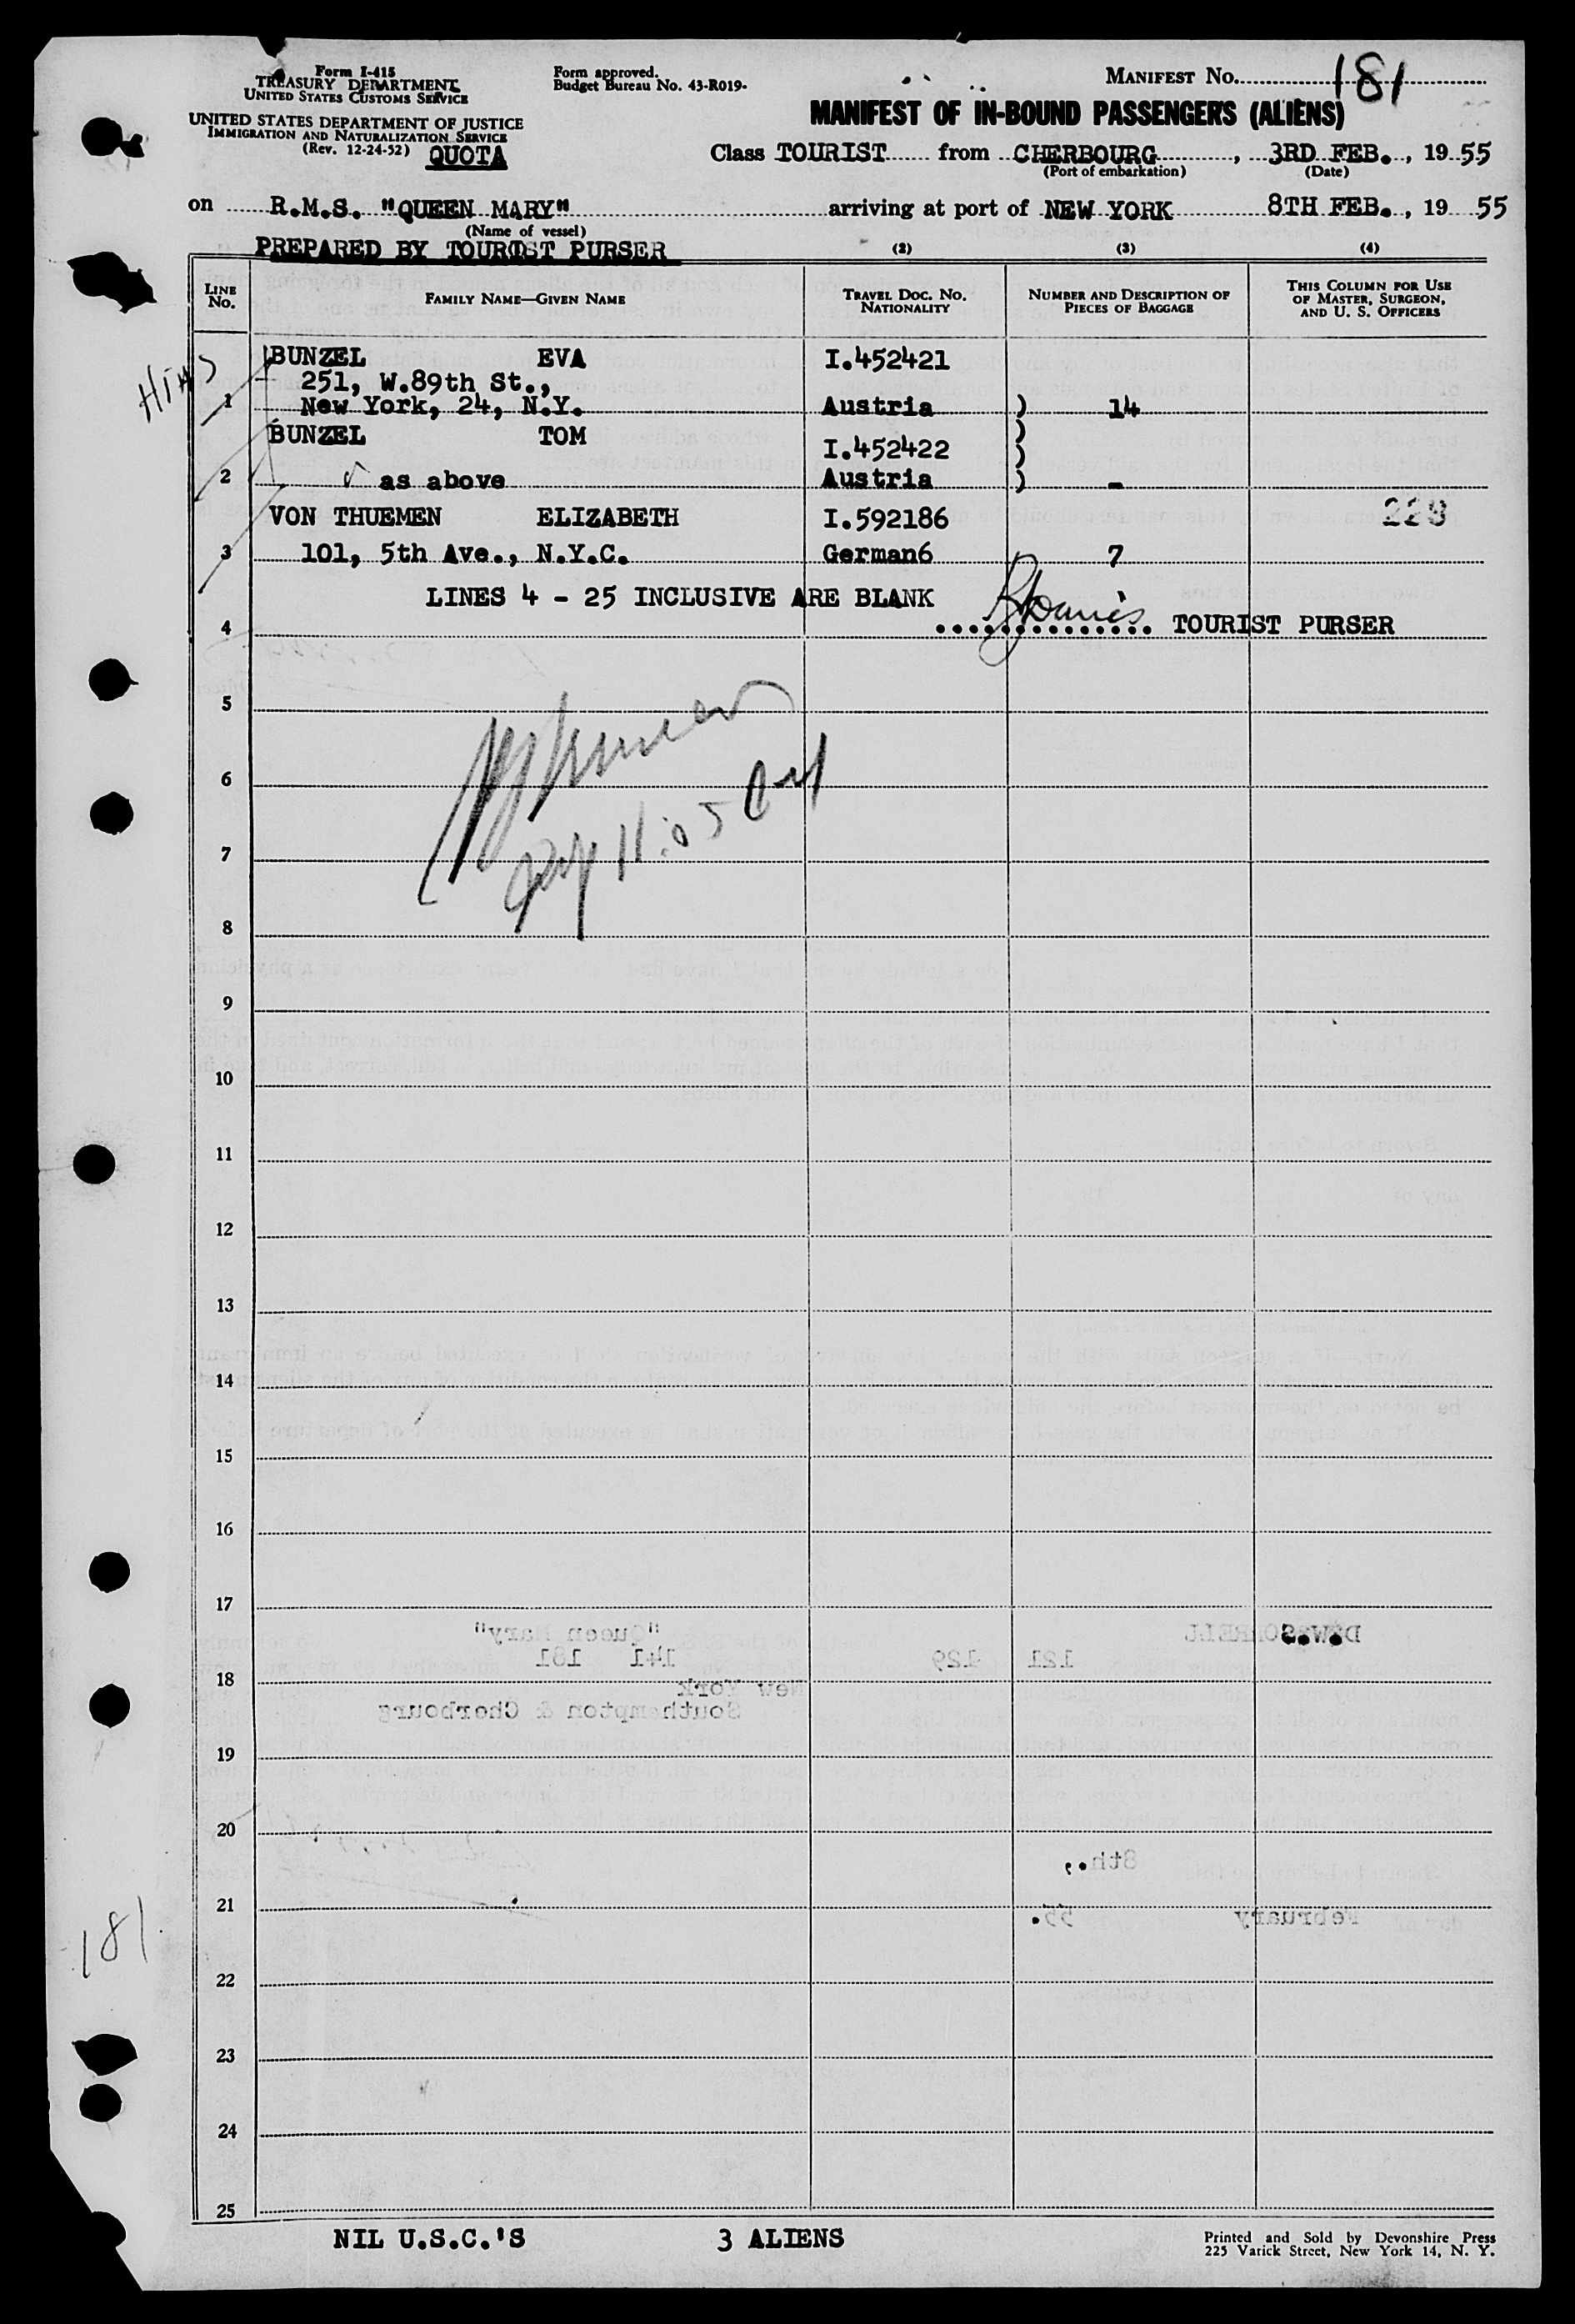 Form I-415
TREASURY DEPARTMENT
UNITED STATES CUSTOMS SERVICE
UNITED STATES DEPARTMENT OF JUSTICE
IMMIGRATION AND NATURALIZATION SERVICE
(Rev. 12-24-52) QUOTA
Form approved.
Budget Bureau No. 43-R019-
MANIFEST No. 181
MANIFEST OF IN-BOUND PASSENGERS (ALIENS)
Class TOURIST from CHERBOURG, 3RD FEB., 19 55
(Port of embarkation) (Date)
on R.M.S. "QUEEN MARY" arriving at port of NEW YORK 8TH FEB., 19 55
(Name of vessel)
PREPARED BY TOURIST PURSER (2) (3) (4)
LINE No. FAMILY NAME—GIVEN NAME TRAVEL DOC. No. NATIONALITY NUMBER AND DESCRIPTION OF PIECES OF BAGGAGE THIS COLUMN FOR USE OF MASTER, SURGEON, AND U. S. OFFICERS
HIAS
BUNZEL EVA I.452421
251, W.89th St.,
1 New York, 24, N.Y. Austria ) 14
BUNZEL TOM I.452422 )
2 as above Austria ) -
VON THUEMEN ELIZABETH I.592186 228
3 101, 5th Ave., N.Y.C. German6 7
LINES 4 - 25 INCLUSIVE ARE BLANK
4 TOURIST PURSER
5
6
7
11:05
8
9
10
11
12
13
14
15
16
17
"Queen Mary"
D.W.SORRELL
141 181 121 129
18
New York
Southampton & Cherbourg
19
20
8th.,
21
February 55.
181
22
23
24
25
NIL U.S.C.'S 3 ALIENS
Printed and Sold by Devonshire Press
225 Varick Street, New York 14, N. Y.